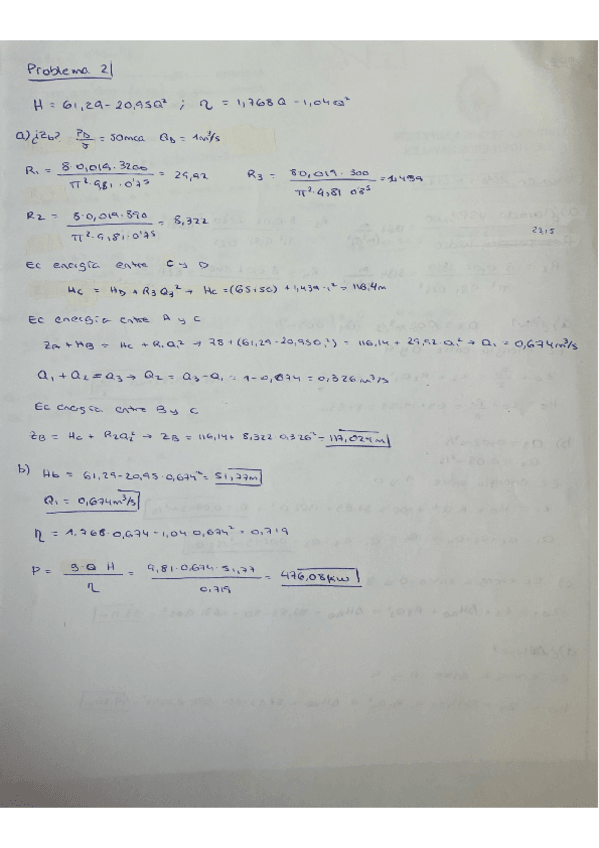 Problema 2|
H = 61,29 - 20,95Q² ; η = 1,768Q - 1,04Q²
a) ¿Zb? PD/γ = 50mca QD = 1m³/s
R1 = 8·0,019·3200 / π²·9,81·0'7⁵ = 29,92 R3 = 8·0,019·300 / π²·9,81 0'8⁵ = 1,439
R2 = 8·0,019·890 / π²·9,81·0'7⁵ = 8,322
Ec energía entre C y D
Hc = HD + R3 Q3² → Hc = (65+50) + 1,439·1² = 116,4m
Ec energía entre A y C
ZA + HB = Hc + R1Q1² → 78 + (61,29 - 20,95Q1²) = 116,14 + 29,92 Q1² → Q1 = 0,674m³/s
Q1 + Q2 = Q3 → Q2 = Q3 - Q1 = 1 - 0,674 = 0,326m³/s
Ec energía entre B y C
ZB = Hc + R2Q2² → ZB = 116,14 + 8,322·0,326² = 117,024m
b) Hb = 61,29 - 20,95·0,674² = 51,77m
Q1 = 0,674m³/s
η = 1,768·0,674 - 1,04·0,674² = 0,719
P = 9·Q·H / η = 9,81·0,674·51,77 / 0,719 = 476,08kW